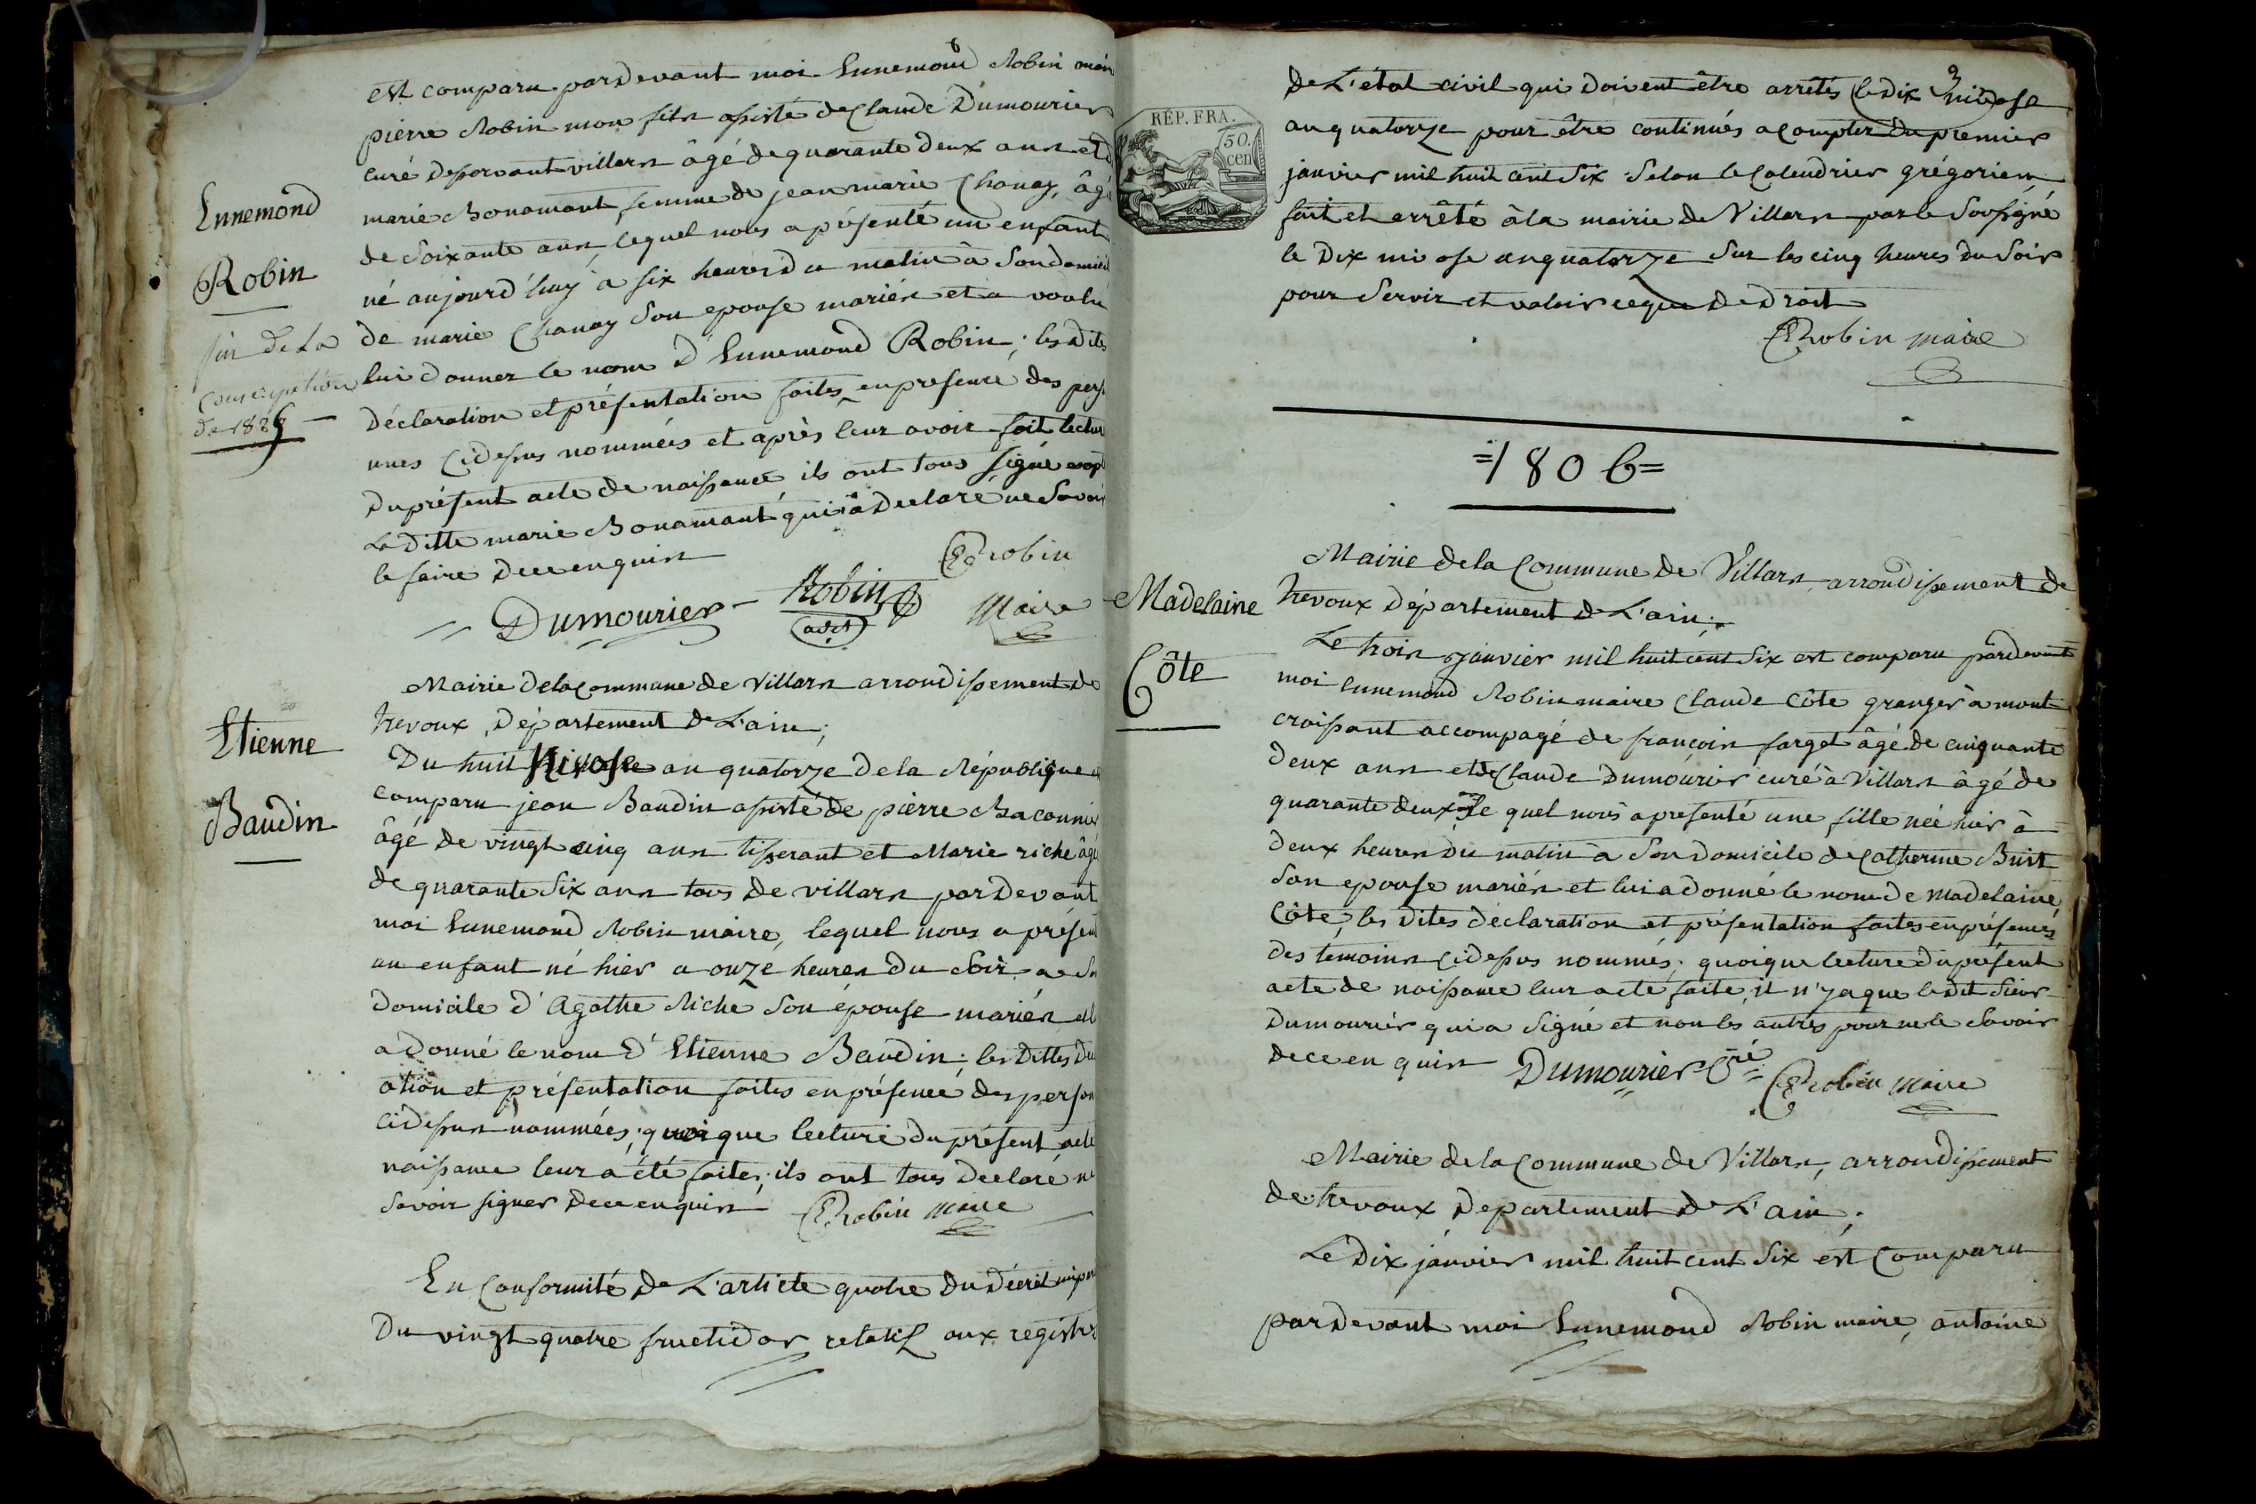 est comparu pardevant moi Ennemond Robin
pierre Robin mon fils assisté de Claude Dumourier
curé desservant villars âgé de quarante deux ans et
marie Bonamant femme de jean marie Chanay, âg
de soixante ans, lequel nous a présenté un enfant
né aujourd'huy à six heures du matin à son domici
de marie Chanay son epouse mariés et a voulu
lui donner le nom d'Ennemond Robin; les dites
déclaration et présentation faites en presence des pers
nnes cidessus nommées et après leur avoir fait lectur
du présent acte de naissance ils ont tous signé
la ditte marie Bonamant qui a declaré ne savoir
le faire de ce enquis
Dumourier Robin ERobin
adjt Maire
Ennemond
Robin
fin de la
conscription
Etienne
Baudin
Mairie de la commune de villars arrondissement de
trevoux, département de L'ain;
Du huit Nivose an quatorze de la République
comparu jean Baudin assisté de pierre
âgé de vingt cinq ans tisserant et Marie riche âgé
de quarante six ans tous de villars pardevant
moi Ennemond Robin maire, lequel nous a présen
un enfant né hier a onze heures du soir a
domicile d'Agathe Riche son épouse mariés et
a donné le nom d'Etienne Baudin; les dittes
ation et présentation faites en présence des person
cidessus nommées; quoique lecture du présent acte
naissance leur a été faite; ils ont tous declaré ne
savoir signer de ce enquis ERobin Maire
En conformité de L'article quatre du Décret
Du vingt quatre fructidor relatif aux registres
RÉP. FRA.
50.
cen
de L'état civil qui doivent être arrêtés le dix nivose
an quatorze pour être continués a compter du premier
janvier mil huit cent six selon le Calendrier grégorien
fait et arrêté à la mairie de Villars par le soussigné
le dix nivose an quatorze sur les cinq heures du soir
pour servir et valoir ce que de droit
ERobin maire
=1806=
Madelaine
Côte
Mairie de la Commune de Villars arrondissement de
trevoux Département de L'ain;
Le trois janvier mil huit cent six est comparu pardevant
moi Ennemond Robin maire Claude Côte granger à mont
croissant accompagé de françois farget âgé de cinquante
deux ans et de Claude Dumourier curé à Villars âgé de
quarante deux le quel nous a presenté une fille née hier à
deux heures du matin à son domicile de Catherine
son epouse mariés et lui a donné le nom de Madelaine
Côte, les dites déclaration et présentation faites en présence
des temoins cidessus nommés; quoique lecture du présent
acte de naissance leur a eté faite, il n'y a que le dit sieur
Dumourier qui a signé et non les autres pour ne le savoir
de ce en quis Dumourier Cré ERobin Maire
Mairie de la Commune de Villars, arrondissement
de trevoux Departement de L'ain;
Le Dix janvier mil huit cent six est Comparu
pardevant moi Ennemond Robin maire, antoine